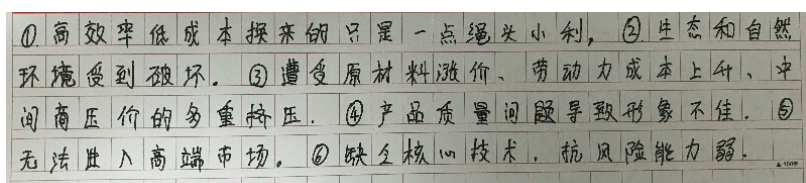 ①高效率低成本换来的只是一点绳头小利,②生态和自然
环境受到破坏.③遭受原材料涨价、劳动力成本上升、中
间商压价的多重挤压.④产品质量问题导致形象不佳.⑤
无法进入高端市场。⑥缺乏核心技术.抗风险能力弱.
▲100字